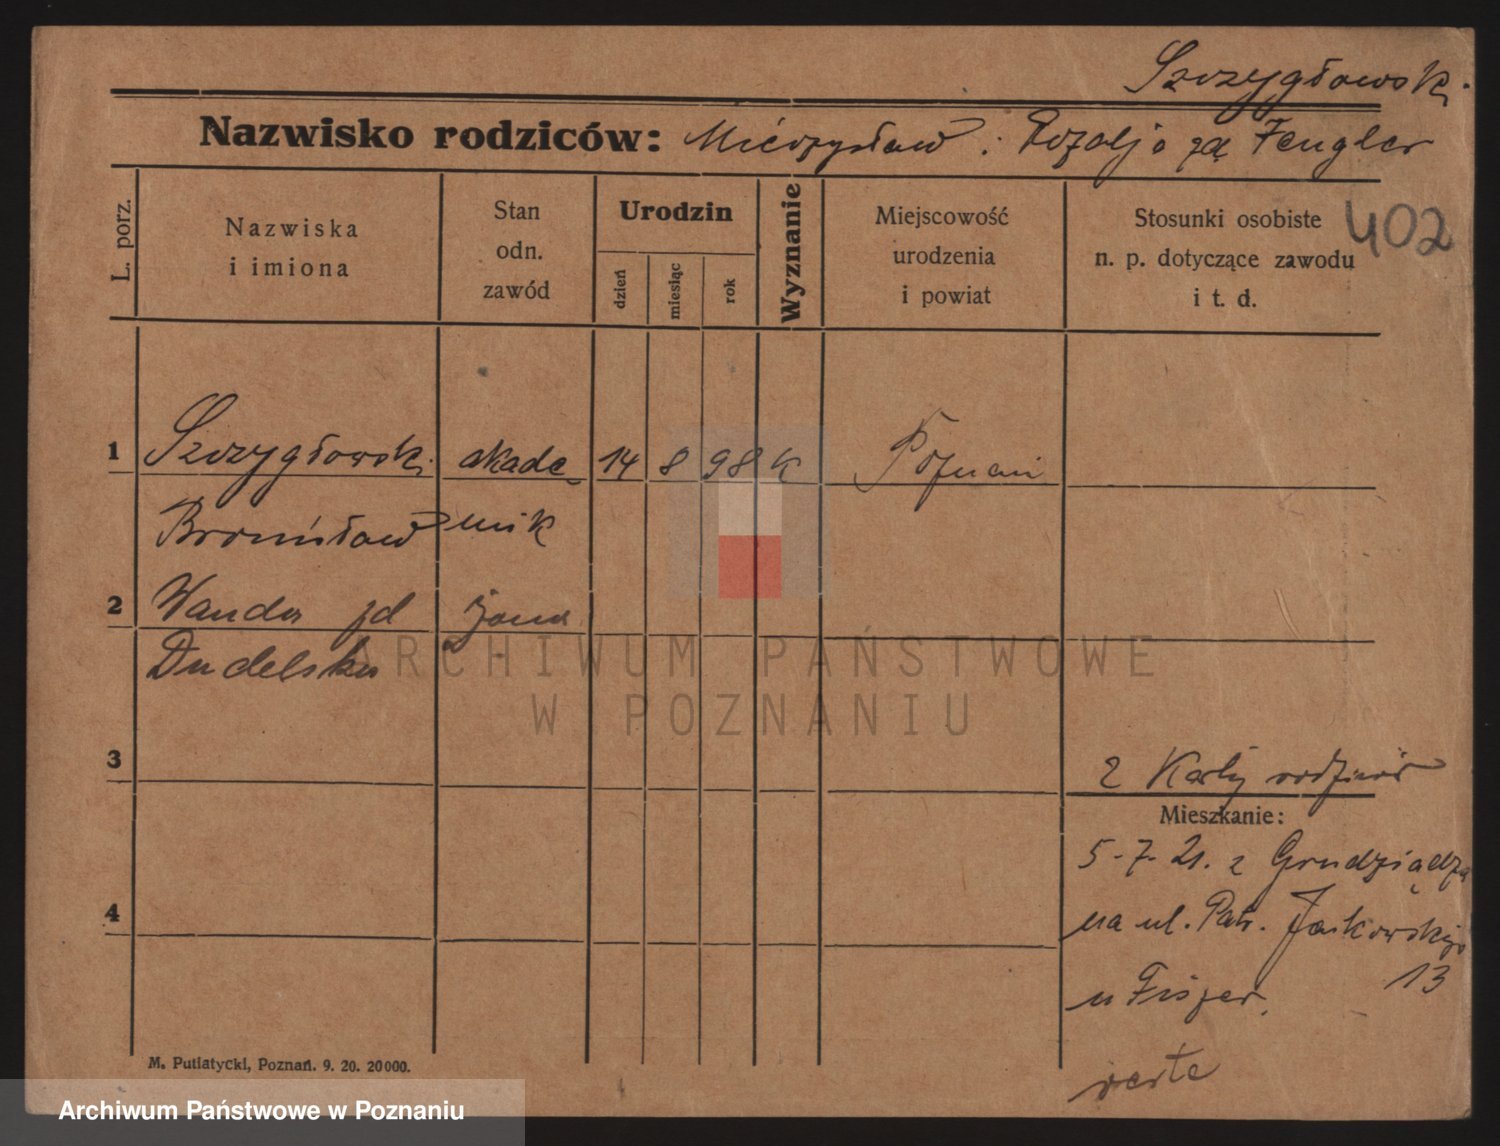 Szczygłowski
Nazwisko rodziców: Mieczysław i Rozalja zd Fengler
L. porz.
Nazwiska
i imiona
Stan
odn.
zawód
Urodzin
dzień
miesiąc
rok
Wyznanie
Miejscowość
urodzenia
i powiat
Stosunki osobiste
n. p. dotyczące zawodu
i t. d.
402
1 Szczygłowski akade 14 8 98 K Poznań
Bronisław mik
2 Wanda żona
Dudelska
3
z Karty rodziców
Mieszkanie:
5-7-21. z Grudziądza
4
na ul. Patr. Jackowskiego
13
u Fiszer.
verte
M. Putiatycki, Poznań. 9. 20. 20000.
ARCHIWUM PAŃSTWOWE
W POZNANIU
Archiwum Państwowe w Poznaniu